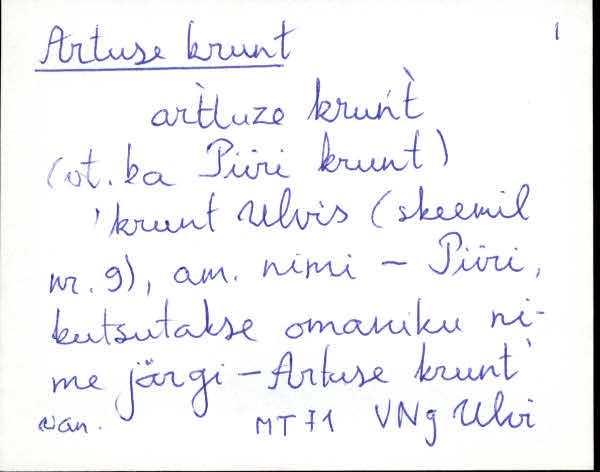 Artuse krunt 1
art̀luze kruńt̀
(vt. ka Piiri krunt)
'krunt Ulvis (skeemil
nr. 9), am. nimi – Piiri,
kutsutakse omaniku ni-
me järgi – Artuse krunt'
MT 71 VNg Ulvi